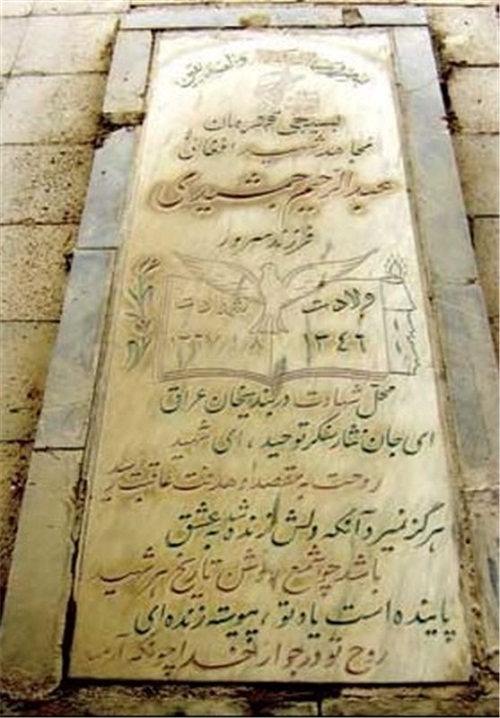 بسیجی قهرمان
مجاهد شهید افغانی
عبدالرحیم جمشیدی
فرزند سرور
ولادت شهادت
۱۳۴۶ ۱۳۶۷/۱/۸
محل شهادت دربندیخان عراق
ای جان نثار سنگر توحید، ای شهید
روحت به مقصد و هدفت عاقبت رسید
هرگز نمیرد آنکه دلش زنده شد به عشق
باشد چو شمع روشن تاریخ هر شهید
پاینده است یاد تو، پیوسته زنده‌ای
روح تو در جوار خدا چونکه آرمید